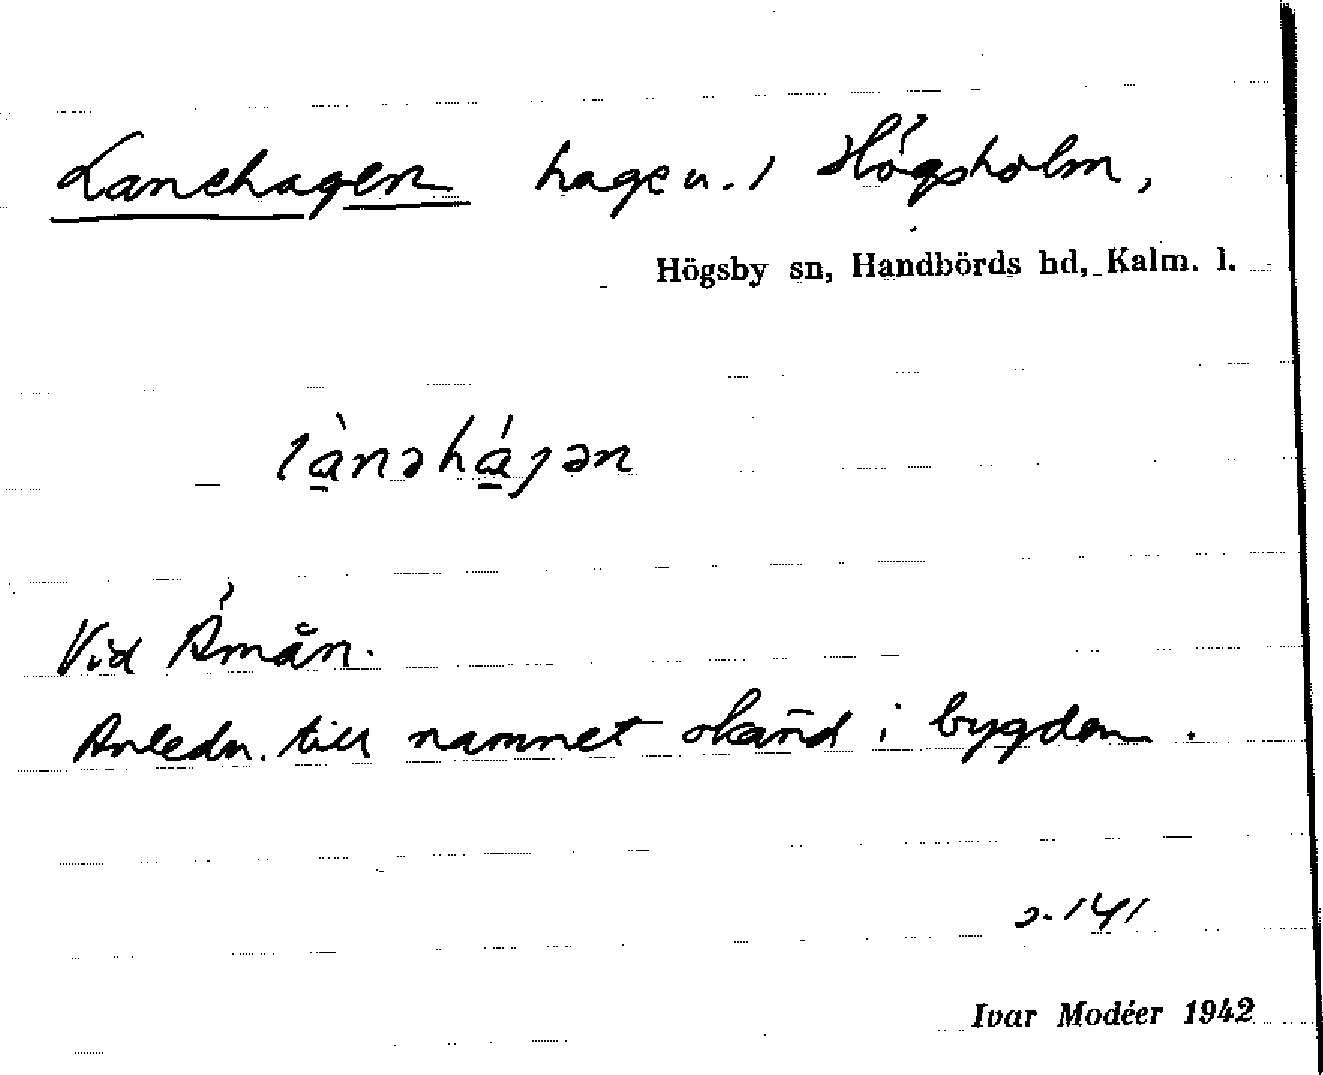 Lanehagen hage u. 1 Högsholm,
Högsby sn, Handbörds hd, Kalm. l.
là̱nəhá̱jən
Vid Åmån.
Anledn. till namnet okänd i bygden.
s. 141
Ivar Modéer 1942